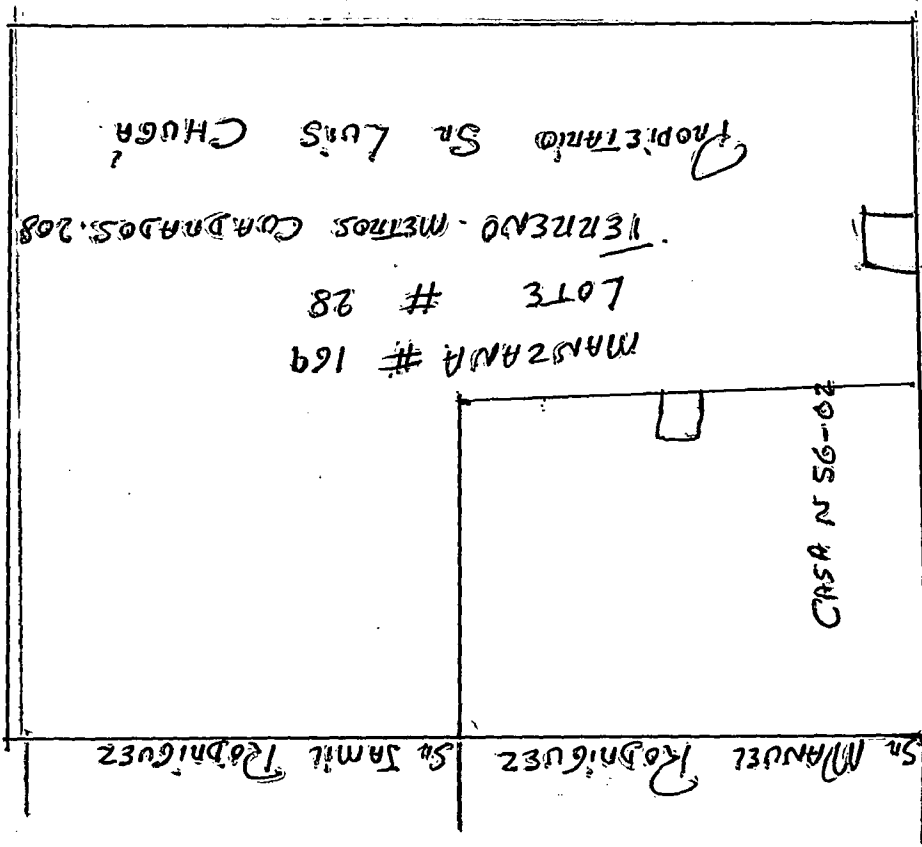 Sr MANUEL RODRIGUEZ
Sr JAMIL RODRIGUEZ
CASA N 56-02
MANZANA # 169
LOTE # 28
TERRENO - METROS CUADRADOS. 208
PROPIETARIO Sr LUIS CHUGÁ